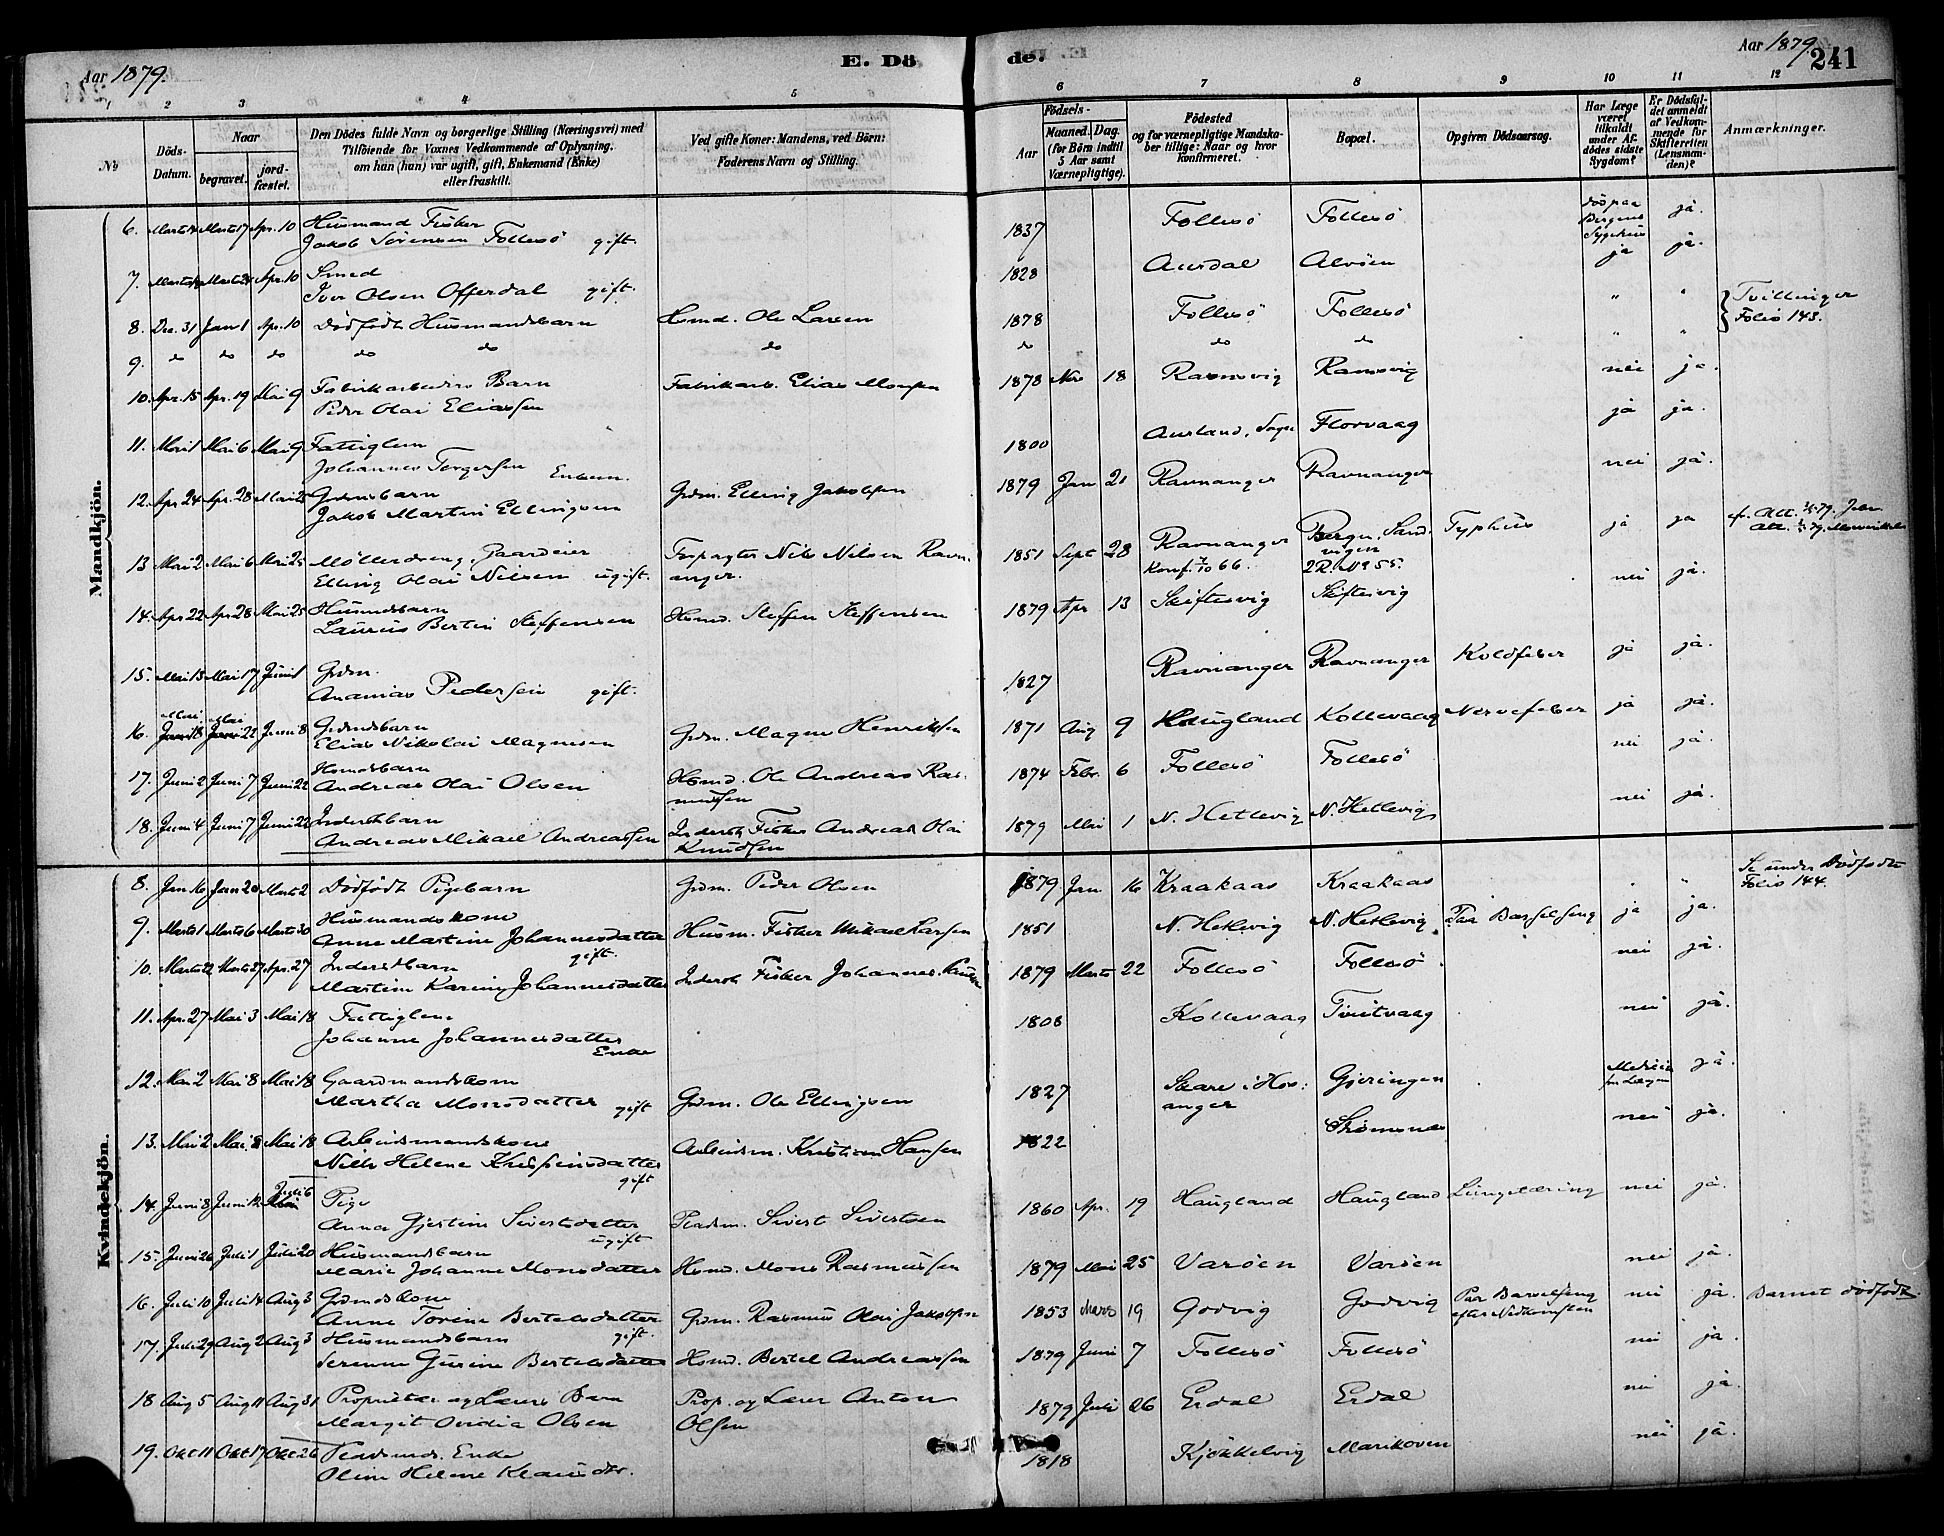 Aar 1879. E. Dö de. Aar 1879. 241
1 2 3 4 5 6 7 8 9 10 11 12
№
Döds-Datum.
Naar
begravet. jord-fæstet.
Den Dödes fulde Navn og borgerlige Stilling (Næringsvei) med
Tilföiende for Voxnes Vedkommende af Oplysning,
om han (hun) var ugift, gift, Enkemand (Enke)
eller fraskilt.
Ved gifte Koner: Mandens, ved Börn:
Faderens Navn og Stilling.
Födsels-
Aar
Maaned. Dag.
(for Börn indtil
5 Aar samt
Værnepligtige).
Födested
og for værnepligtige Mandska-
ber tillige: Naar og hvor
konfirmeret.
Bopæl.
Opgiven Dödsaarsag.
Har Læge
været
tilkaldt
under Af-
dödes sidste
Sygdom?
Er Dödsfal-
det anmeldt
af Vedkom-
mende for
Skifteretten
(Lensman-
den)?
Anmærkninger.
Mandkjön.
6. Marts Marts 17 Apr. 10 Husmand Fisker 1837 Follesö Follesö död paa Bergens Sygehus ja.
Jakob Sörensen Follesö gift.
7. Marts Marts Apr. 10 Smed 1828 Aurdal Alvöen ja ja.
Iver Olsen Offerdal gift.
8. Dec. 31 Jan 1 Apr. 10 Dödfödt Husmandsbarn Hsmd. Ole Larsen 1878 Follesö Follesö " " Tvillinger Folio 143.
9. do do do do do do do do do " "
10. Apr. 15 Apr. 19 Mai 9 Fabrikarbeiders Barn Fabrikarb. Elias Monsen 1878 Nov 18 Ramsvig Ramsvig nei ja.
Peder Olai Eliassen
11. Mai 1 Mai 6 Mai 9 Fattiglem 1800 Aurland, Sogn Florvaag ja ja.
Johannes Torgersen Enkem.
12. Apr 24 Apr. 28 Mai 25 Grdmsbarn Grdm. Elling Jakobsen 1879 Jan 21 Ravnanger Ravnanger nei ja.
Jakob Martin Ellingsen
13 Mai 2 Mai 6 Mai 25 Möllerdreng, Gaardeier Forpagter Nils Nilsen Ravn- 1851 Sept 28 Ravnanger Bergen, Sand- Typhus ja ja
Elling Olai Nilsen ugift. anger. Konf. 66. vigen 2 R. No 55.
14. Apr 22 Apr 28 Mai 25 Husmdsbarn Hsmd. Steffen Steffensen 1879 Apr 13 Skiftesvig Skiftesvig nei ja.
Laurits Bertin Steffensen
15. Mai 13 Mai 17 Juni 1 Grdm. 1827 Ravnanger Ravnanger Koldfeber ja ja.
Ananias Pedersen gift.
Mai Mai
16. Juni 18 Juni 22 Juni 8 Grdmdsbarn Grdm. Magne Henriksen 1871 Aug 9 Haugland Kollevaag Nervefeber ja ja.
Elias Nikolai Magnesen
17. Juni 2 Juni 7 Juni 22 Hsmdsbarn Hsmd. Ole Andreas Ras- 1874 Febr. 6 Follesö Follesö nei ja.
Andreas Olai Olsen mussen
18. Juni 4 Juni 7 Juni 22 Inderstbarn Inderst Fisker Andreas Olai 1879 Mai 1 N. Hetlevig N. Hetlevig nei ja.
Andreas Mikael Andreassen Knudsen
Kvindekjön.
8. Jan 16 Jan 20 Marts 2 Dödfödt Pigebarn Grdm. Peder Olsen 1879 Jan 16 Kraakaas Kraakaas " " Se under Dödfödte Folio 144.
9. Marts 1 Marts 6 Marts 30 Husmandskone Husm. Fisker Mikael Larsen 1851 N. Hetlevig N. Hetlevig. Paa Barselseng ja ja.
Anne Martine Johannesdatter gift.
10. Marts 22 Marts 27 Apr. 27 Inderstbarn Inderst Fisker Johannes 1879 Marts 22 Follesö Follesö. nei ja.
Martine Karine Johannesdatter
11. Apr. 27 Mai 3 Mai 18 Fattiglem 1808 Kollevaag Tveitvaag nei ja.
Johanne Johannesdatter Enke
12. Mai 2 Mai 8 Mai 18 Gaardmandskone Grdm. Ole Ellingsen 1827 Skare i Hos- anger Gjeringen Medicin fra Lægen ja.
Martha Monsdatter gift
13. Mai 2 Mai 8 Mai 18 Arbeidsmandskone Arbeidsm. Kristian Hansen 1822 Strömsnes nei ja.
Niels Helene gift
14. Juni 8 Juni 12 Juli 6 Pige Pladsm. Sivert Sivertsen 1860 Apr. 19 Haugland Haugland Lungetæring nei ja.
Anna Gjertine Sivertsdatter ugift
15. Juni 26 Juli 1 Juli 20 Husmandsbarn Hsmd. Mons Rasmussen 1879 Mai 25 Varöen Varöen nei ja.
Marie Johanne Monsdatter
16. Juli 10 Juli 14 Aug 3 Grdmdskone Grdm. Rasmus Olai Jakobsen 1853 Marts 19 Godvig Godvig Paa Barselseng efter Nedkomsten nei ja. Barnet dödfödt.
Anne Torine Bertelsdatter gift.
17. Juli 29 Aug 2 Aug 3 Husmandsbarn Hsmd. Bertel Andreassen 1879 Juni 7 Follesö Follesö nei ja
Serenne Gurine Bertelsdatter
18 Aug 5 Aug 11 Aug 31 Proprietær og Lærers Barn Prop. og Lærer Anton 1879 Juli 26 Erdal Erdal nei ja.
Margit Ovidia Olsen Olsen
19. Okt 11 Okt 17 Okt 26 Pladsmds. Enke 1818 Kjökkelvig Marikoven nei ja.
Oline Helene Klausdtr.